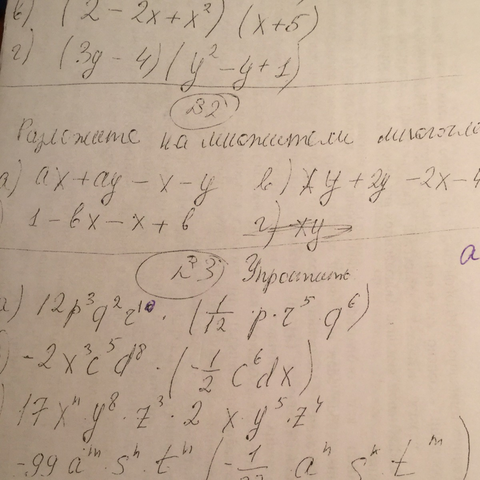 в) (2 - 2x + x²) (x+5)
г) (3y - 4) (y² - y + 1)
№2
Разложите на множители многочле
а) ax + ay - x - y в) xy + 2y - 2x - 4
) 1 - bx - x + b г) xy
№3) Упростить
а
а) 12p³q²r¹⁰ · (1/12 p · r⁵ q⁶)
) -2x³c⁵d⁸ · (-1/2 c⁶dx)
) 17 xⁿ · y⁸ · z³ · 2 x · y⁵ · z⁴
-99 aᵐ · sⁿ · tⁿ (-1/ aⁿ sⁿ tᵐ)